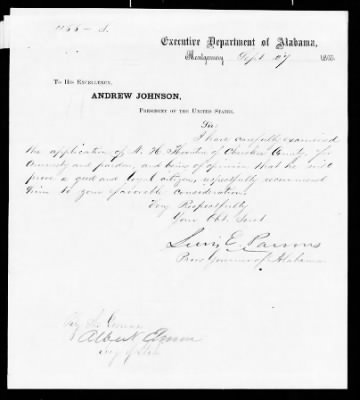 Executive Department of Alabama,
Montgomery Sept 27 1865.
To His Excellency,
ANDREW JOHNSON,
President of the United States.
Sir:
I have carefully examined
the application of W. H. of Cherokee County for
Amnesty and pardon, and being of opinion that he will
prove a good and loyal citizen, respectfully recommend
him to your favorable consideration.
Very Respectfully
Your Obt. Servt
Lewis E. Parsons
Prov Governor of Alabama
By the Governor
Albert Elmore
Secy of State